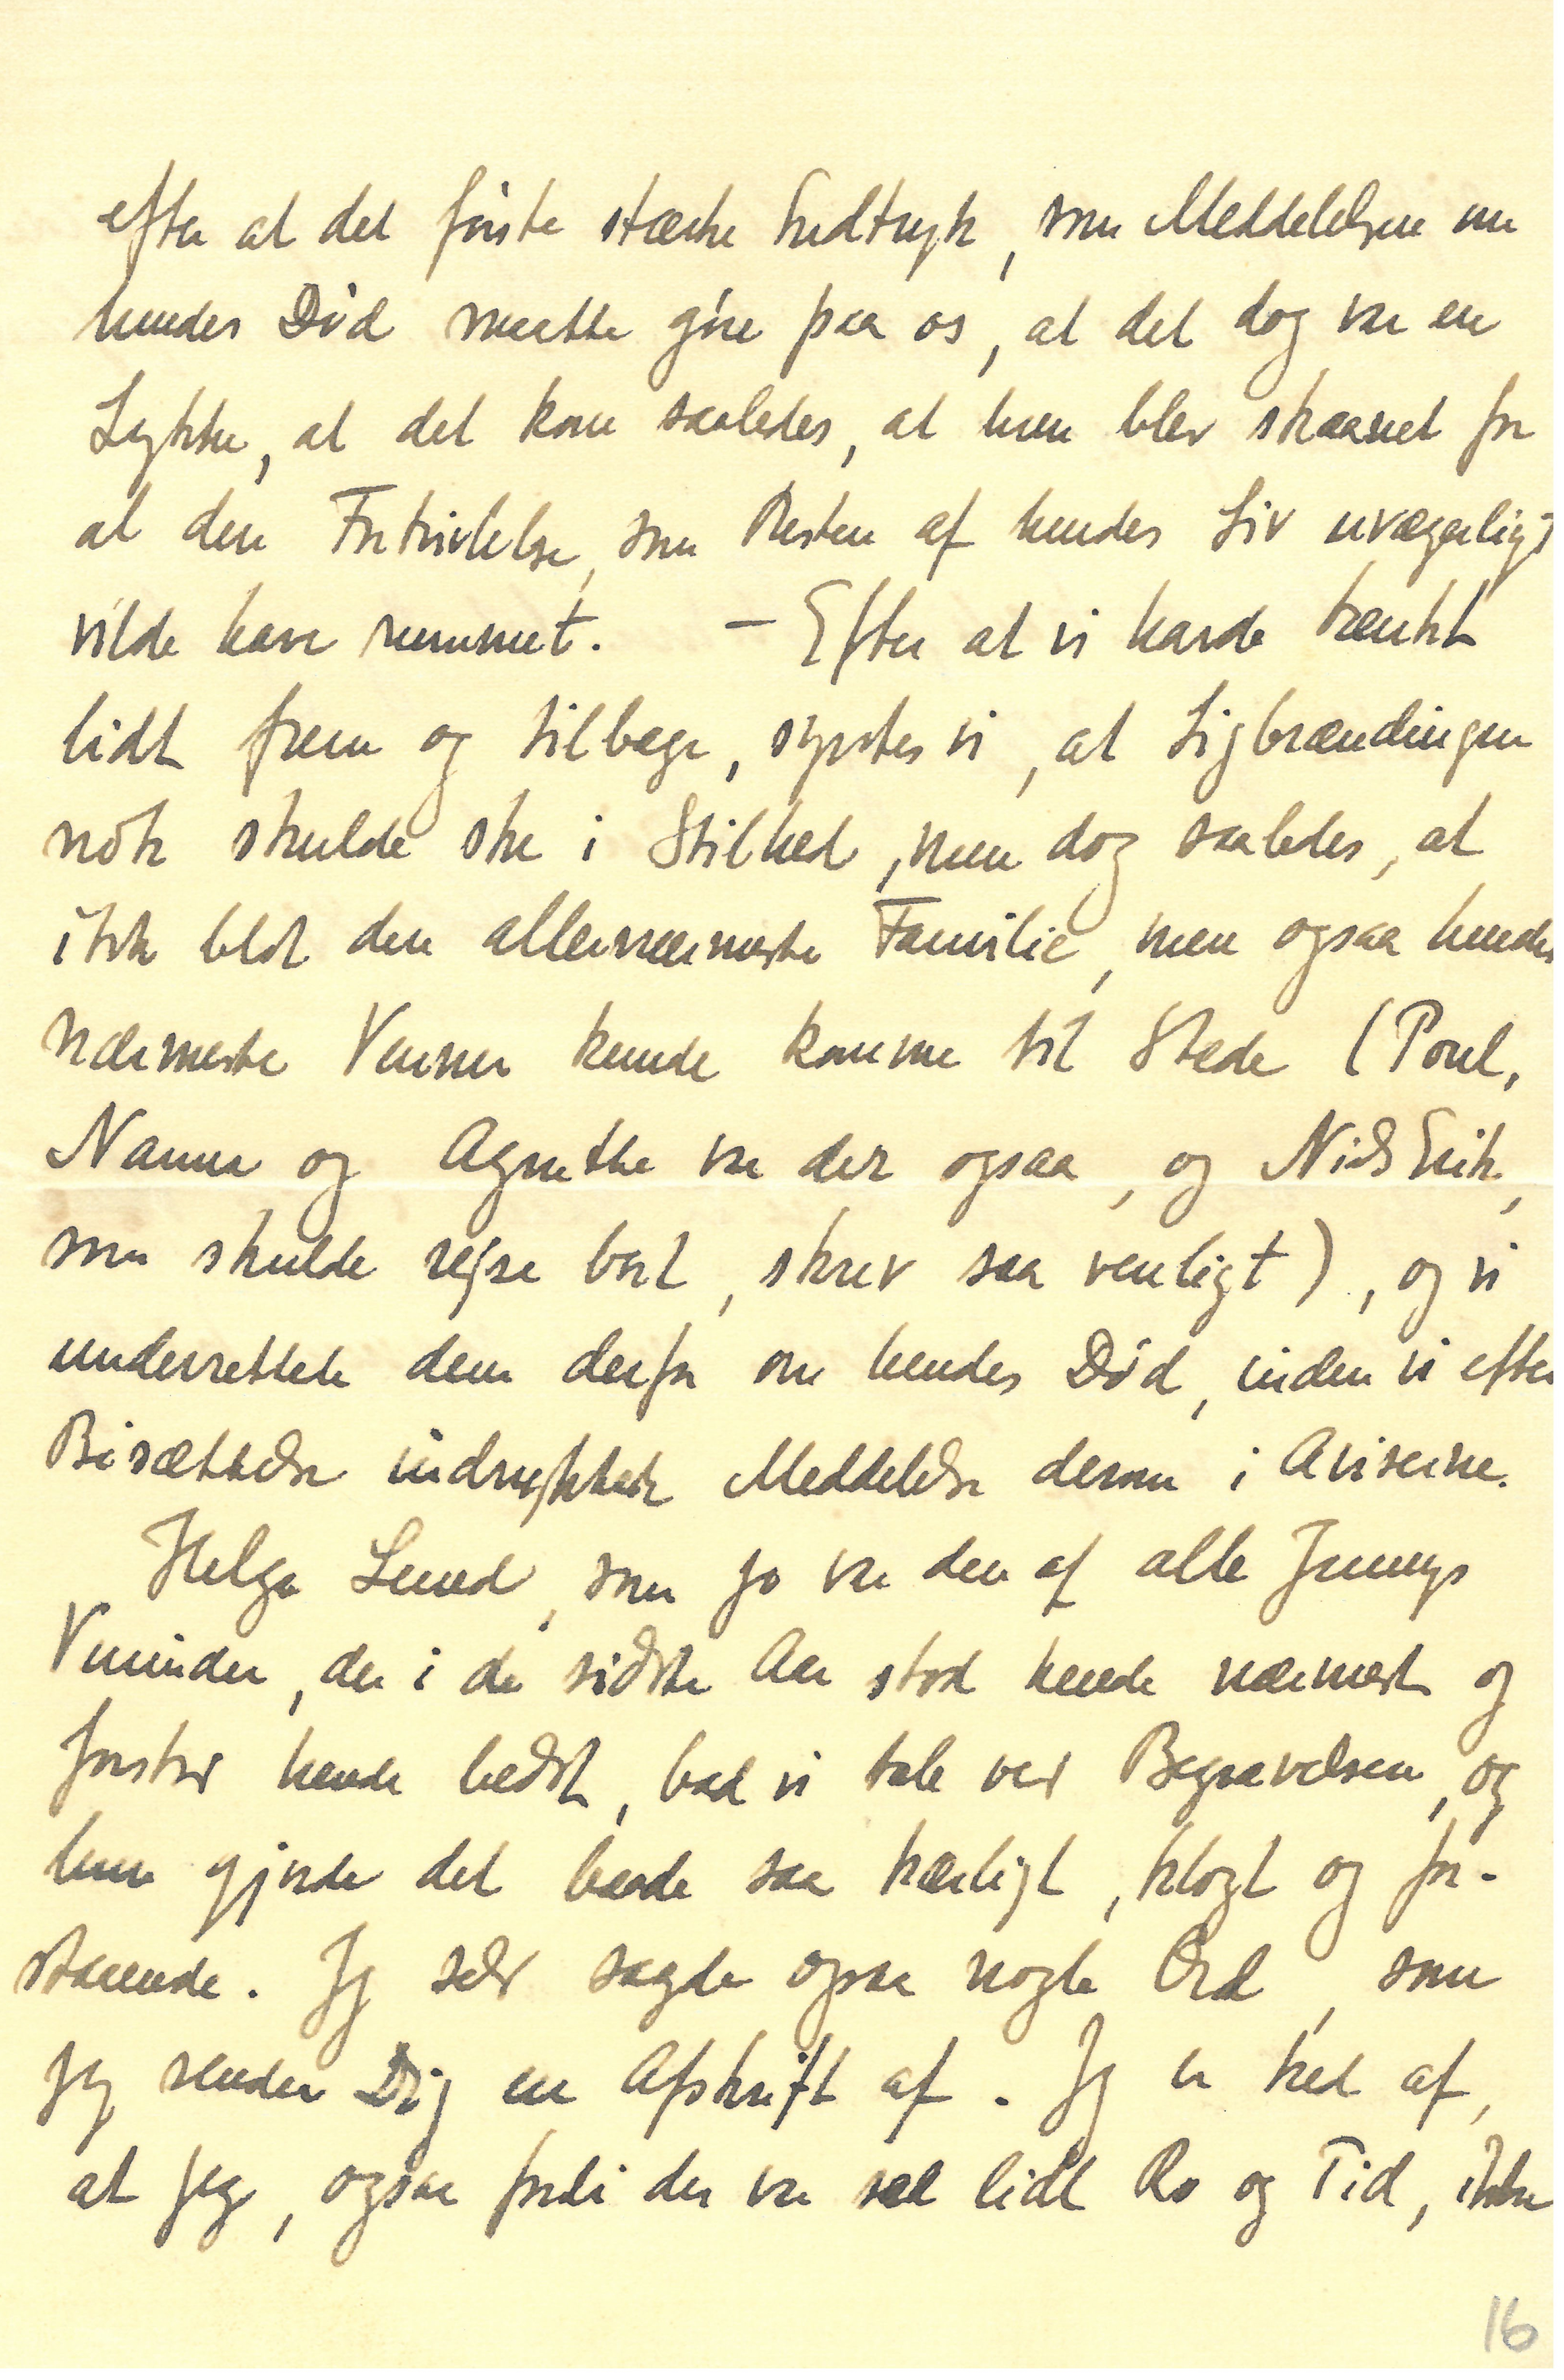 efter at det første stærke Indtryk, som Meddelelsen om
hendes Død maatte gøre paa os, at det dog var en
Lykke, at det kom saaledes, at hun blev skaanet for
al den Fortvivlelse, som Resten af hendes Liv uvægerligt
vilde have rummet. – Efter at vi havde tænkt
lidt frem og tilbage, syntes vi, at Ligbrændingen
nok skulde ske i Stilhed, men dog saaledes, at
ikke blot den allernærmeste Familie, men ogsaa hendes
nærmeste Venner kunde komme til Stede (Poul,
Nanna og Agnethe var der ogsaa, og Niels Erik,
som skulde rejse bort, skrev saa venligt), og vi
underrettede dem derfor om hendes Død, inden vi efter
Bisættelse indrykkede Meddelelse derom i Aviserne.
Helga Lund, som jo var den af alle Jennys
Veninder, der i de sidste Aar stod hende nærmest og
forstod hende bedst, bad vi tale ved Begravelsen, og
hun gjorde det baade saa kærligt, klogt og for-
staaende. Jeg selv sagde ogsaa nogle Ord, som
jeg sender Dig en Afskrift af. Jeg er ked af,
at jeg, ogsaa fordi der var saa lidt Ro og Tid, ikke
16